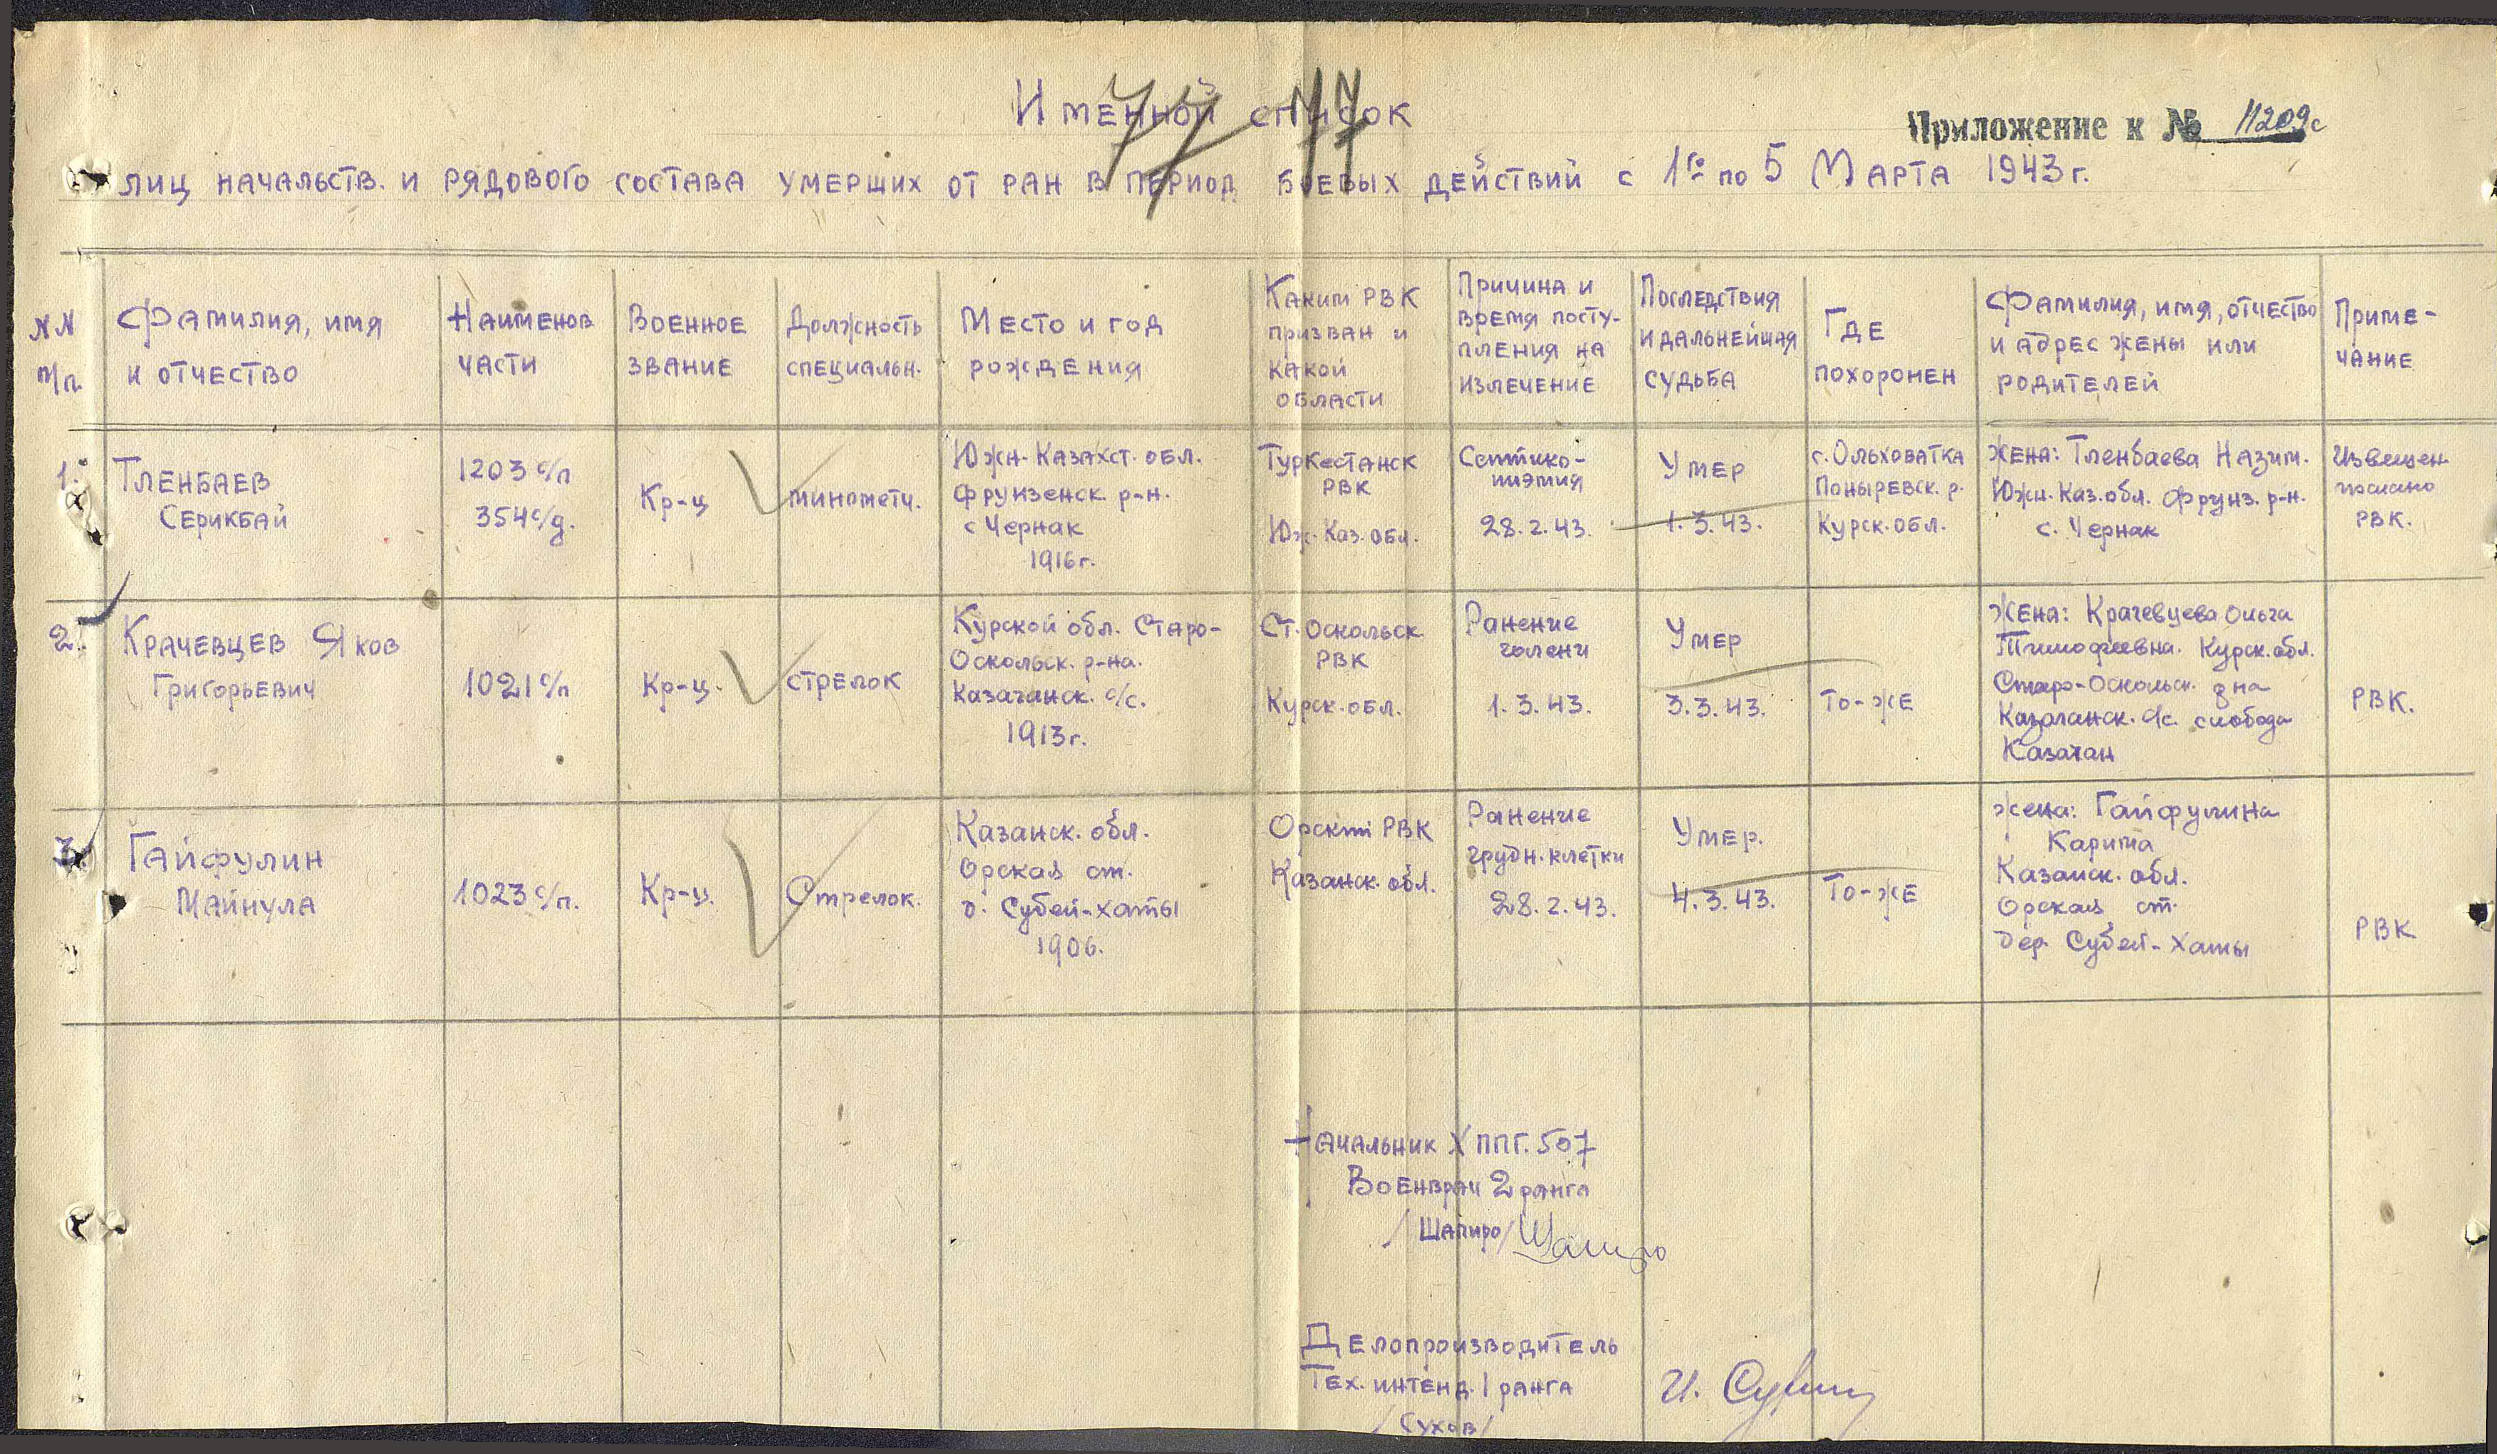 Именной список
Приложение к № 11209с
лиц начальств. и рядового состава умерших от ран в период боевых действий с 1го по 5 Марта 1943 г.
№№ п/п.
Фамилия, имя
и отчество
Наименов
части
Военное
звание
Должность
специальн.
Место и год
рождения
Каким РВК
призван и
какой
области
Причина и
время посту-
пления на
излечение
Последствия
и дальнейшая
судьба
Где
похоронен
Фамилия, имя, отчество
и адрес жены или
родителей
Приме-
чание
1.
Тленбаев
Серикбай
1203 с/п
354 с/д.
Кр-ц
минометч.
Южн. Казахст. обл.
Фрунзенск. р-н.
с Чернак
1916 г.
Туркестанск
РВК
Юж. Каз. обл.
Септико-
пиэмия
28.2.43.
Умер
1.3.43.
с. Ольховатка
Поныревск. р.
Курск. обл.
Жена: Тленбаева Назим.
Южн. Каз. обл. Фрунз. р-н.
с. Чернак
Извещен.
послано
РВК.
2.
Крачевцев Яков
Григорьевич
1021 с/п
Кр-ц.
стрелок
Курской обл. Старо-
Оскольск. р-на.
Казачанск. с/с.
1913 г.
Ст. Оскольск.
РВК
Курск. обл.
Ранение
голени
1.3.43.
Умер
3.3.43.
То-же
Жена: Крачевцева Ольга
Тимофеевна. Курск. обл.
Старо-Оскольск. р-на
Казачанск. с/с. слобода
Казачан
РВК.
3.
Гайфулин
Майнула
1023 с/п.
Кр-ц.
Стрелок.
Казанск. обл.
Орская ст.
д. Субей-хаты
1906.
Орский РВК
Казанск. обл.
Ранение
грудн. клетки
28.2.43.
Умер.
4.3.43.
То-же
Жена: Гайфулина
Карима
Казанск. обл.
Орская ст.
дер. Субей-Хаты
РВК
Начальник ХППГ. 507
Военврач 2 ранга
/Шапиро/ Шапиро
Делопроизводитель
Тех. интенд. 1 ранга
/Сухов/